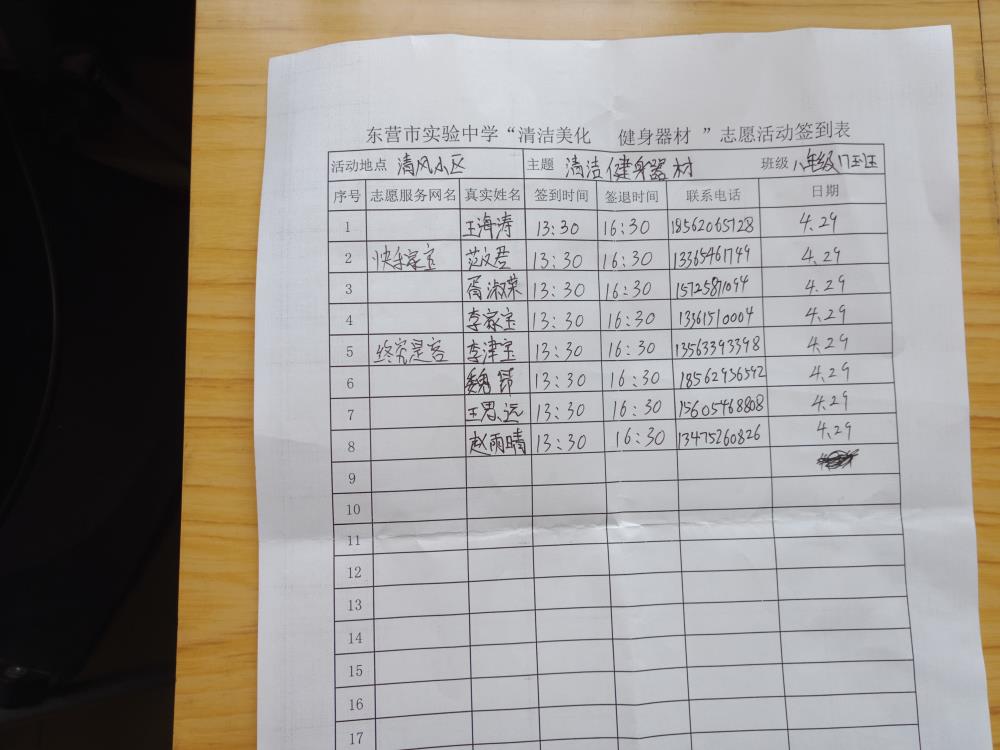 东营市实验中学“清洁美化 健身器材 ”志愿活动签到表
活动地点 清风小区 主题 清洁健身器材 班级 八年级17班
序号 志愿服务网名 真实姓名 签到时间 签退时间 联系电话 日期
1 王海涛 13:30 16:30 18562065728 4.29
2 快乐家宝 范文君 13:30 16:30 13365461749 4.29
3 胥淑荣 13:30 16:30 15725871094 4.29
4 李家宝 13:30 16:30 13361510004 4.29
5 终究是客 李津宝 13:30 16:30 13563393398 4.29
6 魏昂 13:30 16:30 18562956592 4.29
7 王思远 13:30 16:30 15605468808 4.29
8 赵雨晴 13:30 16:30 13475260826 4.29
9
10
11
12
13
14
15
16
17